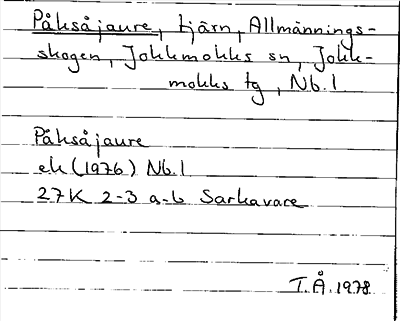 Påksåjaure, tjärn, Allmännings-
skogen, Jokkmokks sn, Jokk-
mokks tg, Nb. l
Påksåjaure
ek (1976) Nb. l
27K 2-3 a-b Sarkavare
T.Å. 1978